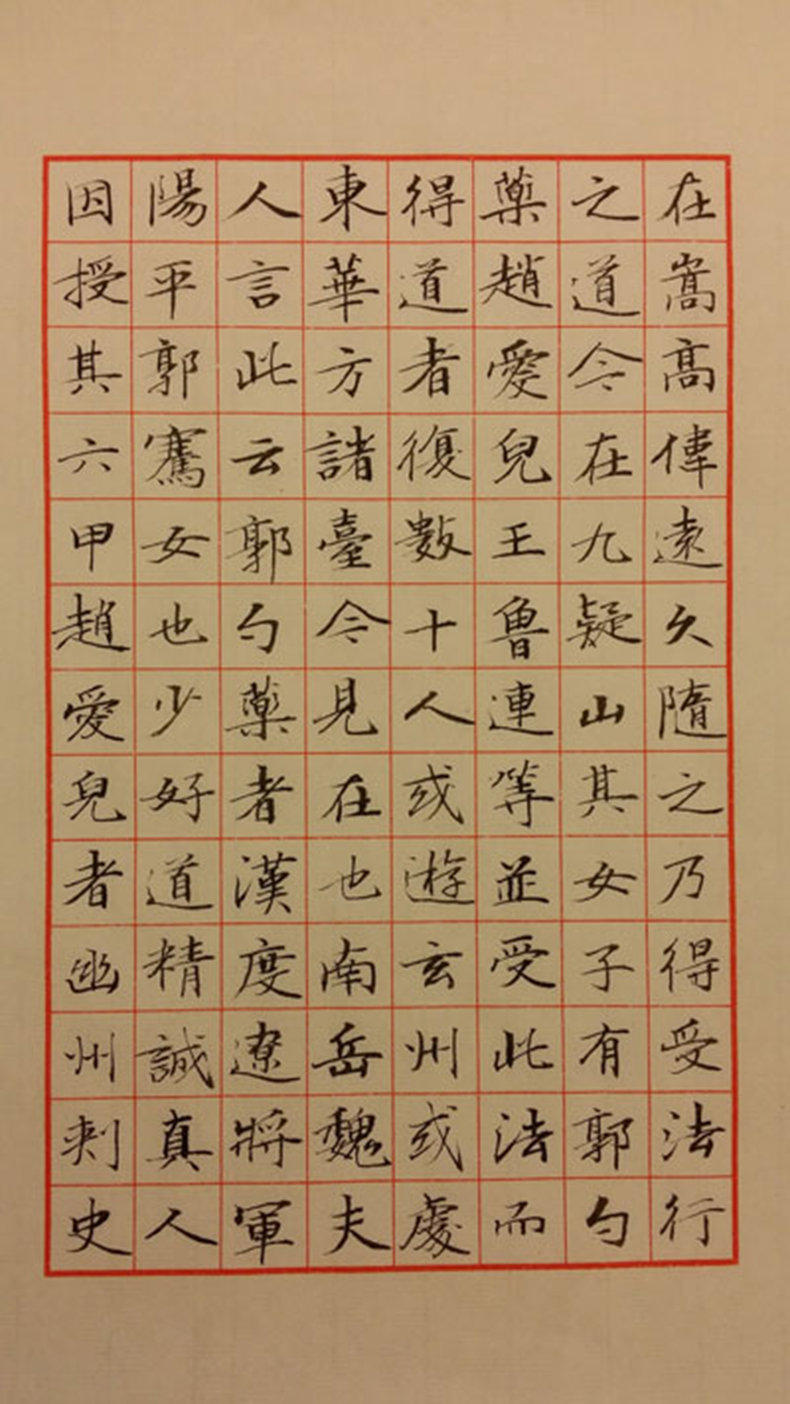 在嵩高偉遠久隨之乃得受法行
之道今在九疑山其女子有郭勺
藥趙愛兒王魯連等並受此法而
得道者復數十人或遊玄州或處
東華方諸臺今見在也南岳魏夫
人言此云郭勺藥者漢度遼將軍
陽平郭騫女也少好道精誠真人
因授其六甲趙愛兒者幽州刺史